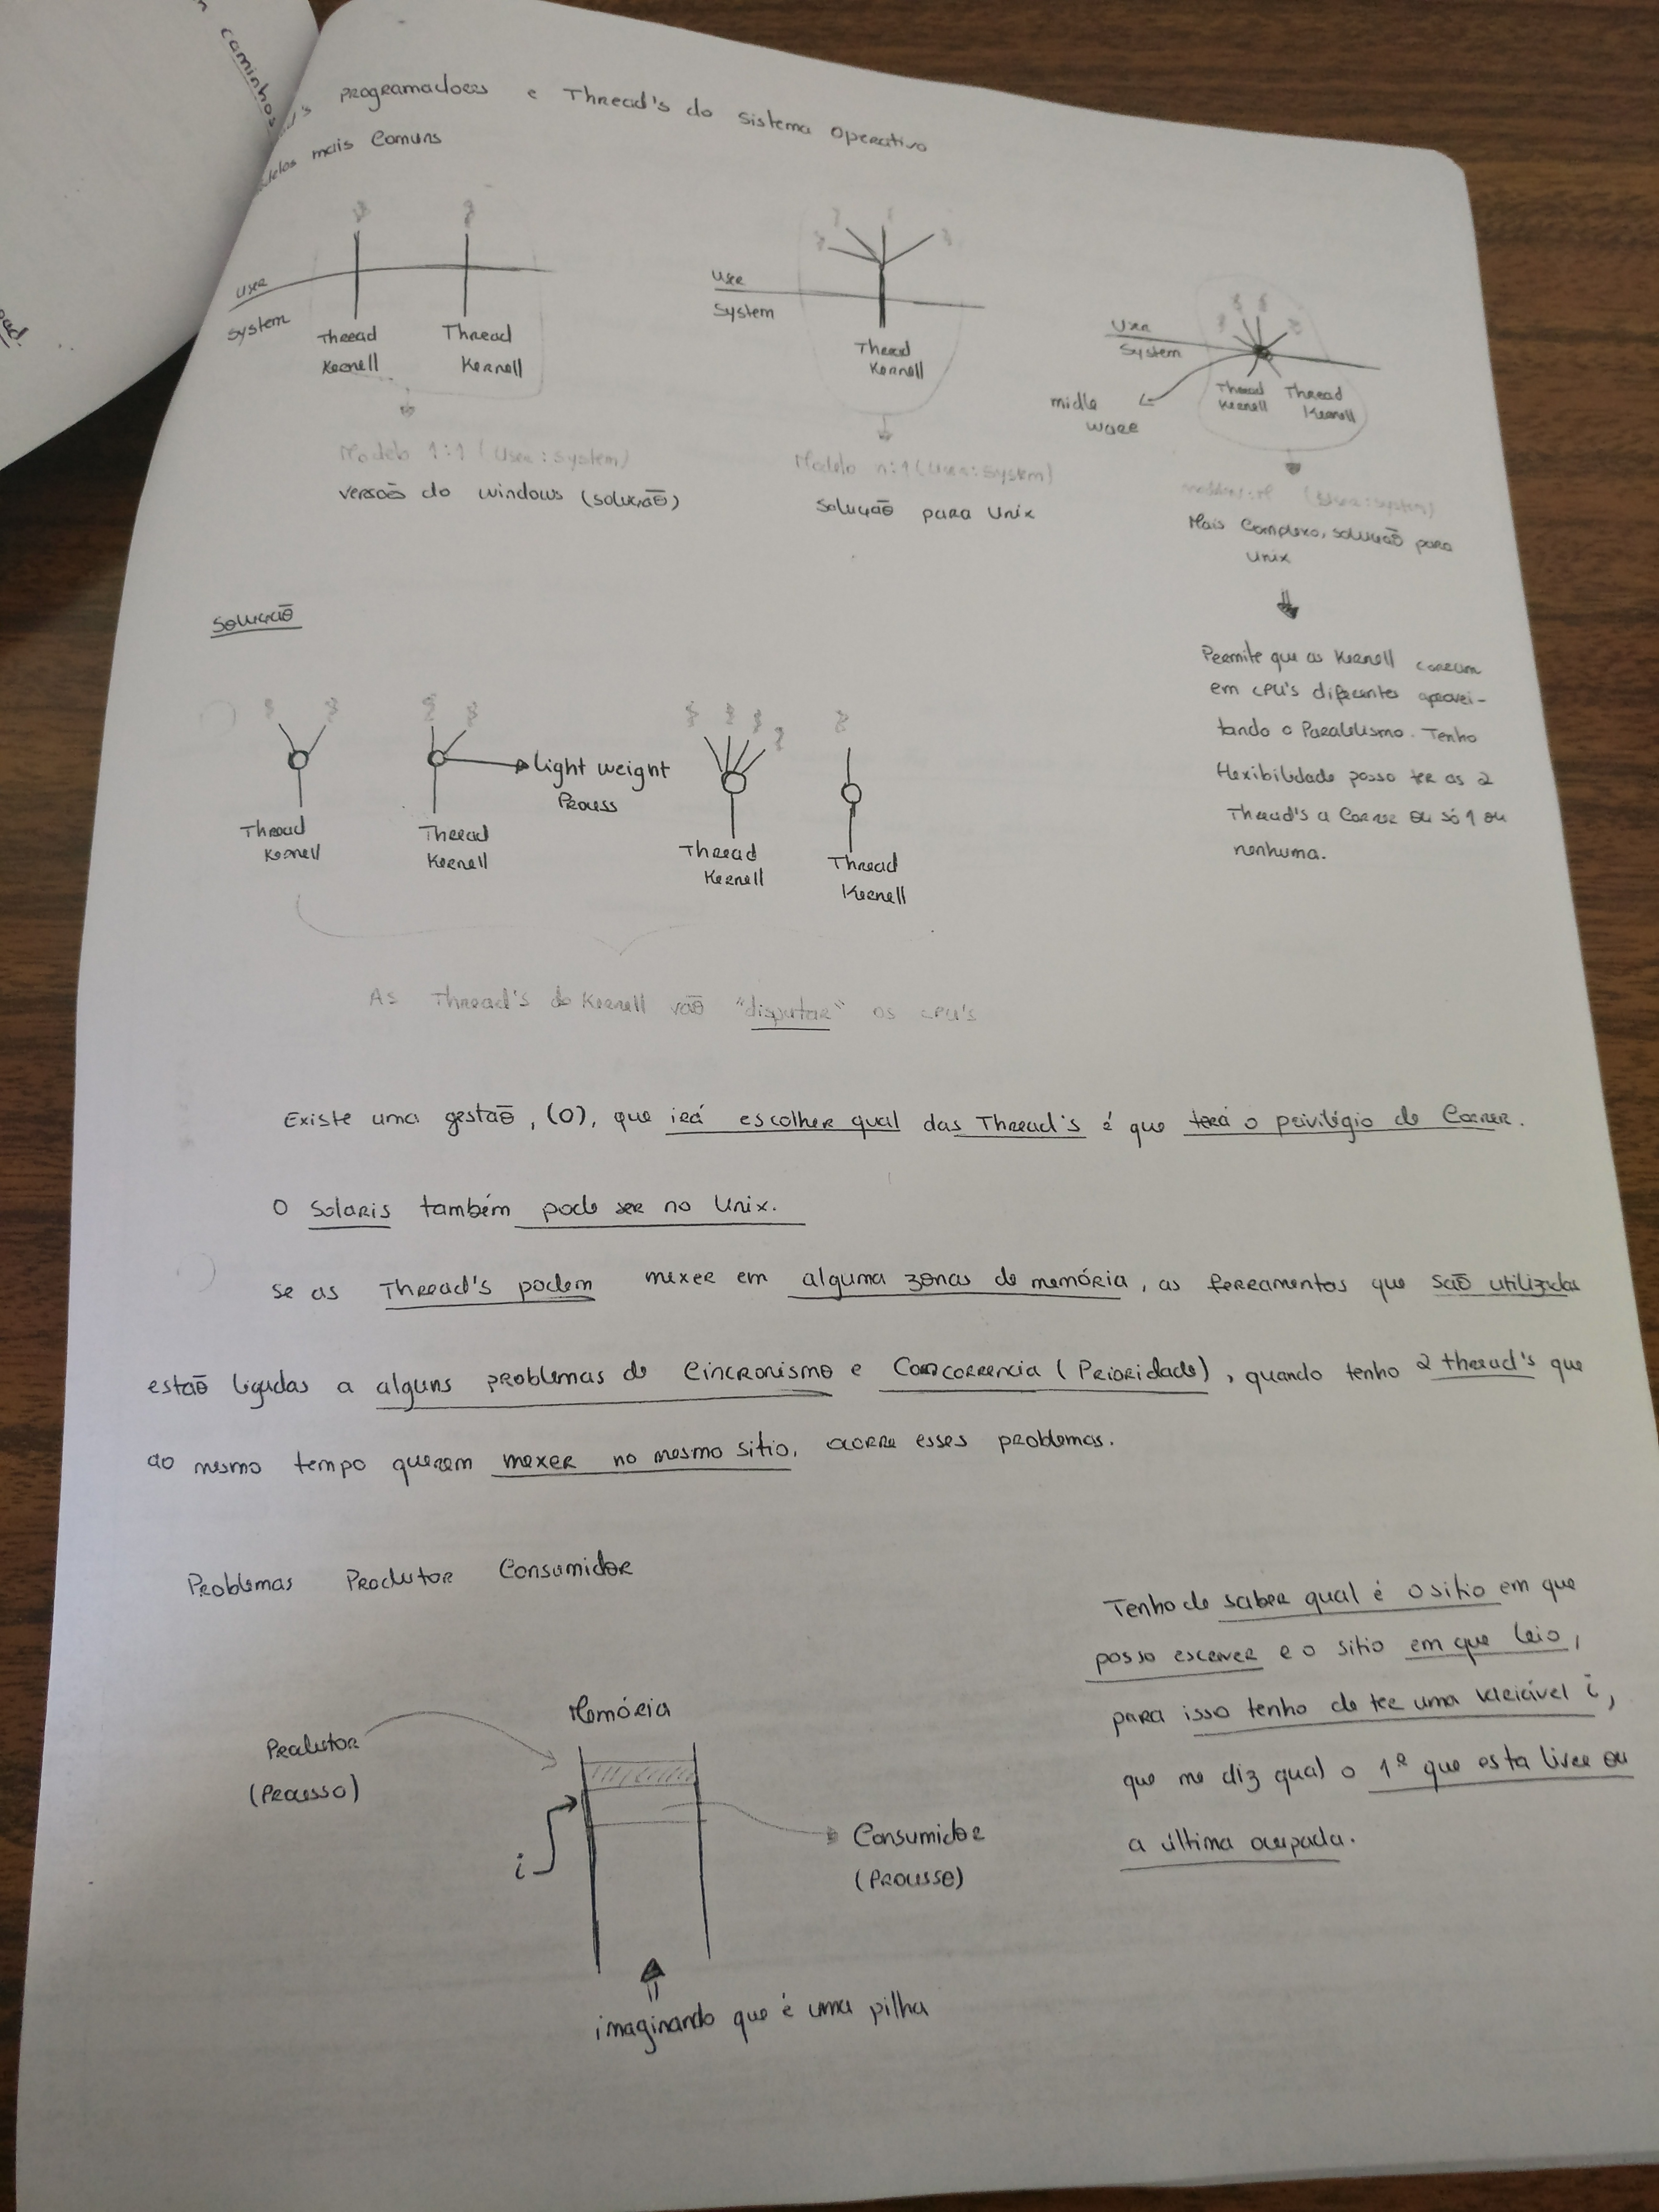 caminhos
programadores e Thread's do Sistema Operativo
mais Comuns
User
System
Thread
Kernell
Thread
Kernell
Modelo 1:1 (User:System)
versões do windows (solução)
User
System
Thread
Kernell
Modelo n:1 (User:System)
Solução para Unix
User
System
midle
ware
Thread
Kernell
Thread
Kernell
(User:System)
Mais Complexo, solução para
Unix
Permite que as Kernell corram
em CPU's diferentes aprovei-
tando o Paralelismo. Tenho
flexibilidade posso ter as 2
Thread's a Correr ou só 1 ou
nenhuma.
Solução
Thread
Kernell
Thread
Kernell
light weight
Process
Thread
Kernell
Thread
Kernell
As Thread's do Kernell vão "disputar" os CPU's
Existe uma gestão, (O), que irá escolher qual das Thread's é que terá o privilégio de Correr.
O Solaris também pode ser no Unix.
se as Thread's podem mexer em alguma zonas de memória, as ferramentas que são utilizadas
estão ligadas a alguns problemas de Cincronismo e Concorrencia (Prioridade), quando tenho 2 thread's que
ao mesmo tempo querem mexer no mesmo sitio, ocorre esses problemas.
Problemas Produtor Consumidor
Tenho de saber qual é o sitio em que
posso escrever e o sitio em que leio,
para isso tenho de ter uma variável i,
que me diz qual o 1º que esta livre ou
a última ocupada.
Memória
Produtor
(Processo)
i
Consumidor
(Processo)
imaginando que é uma pilha